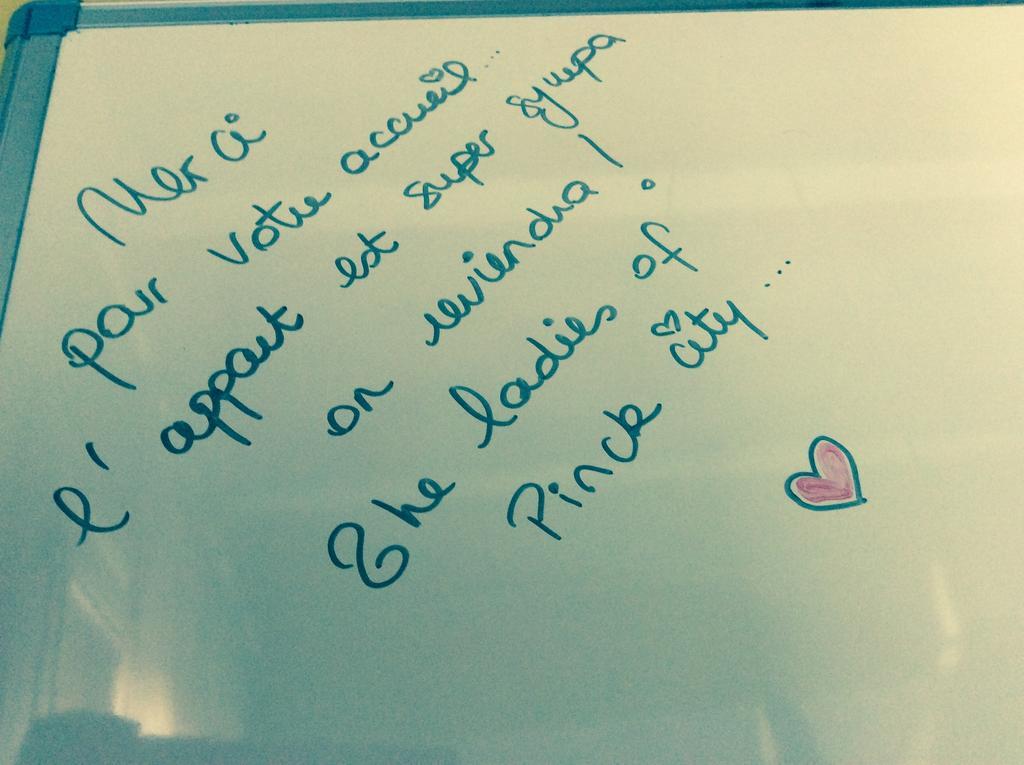 Merci
pour votre accueil...
l'appart est super sympa
on reviendra !
The ladies of
Pinck city...